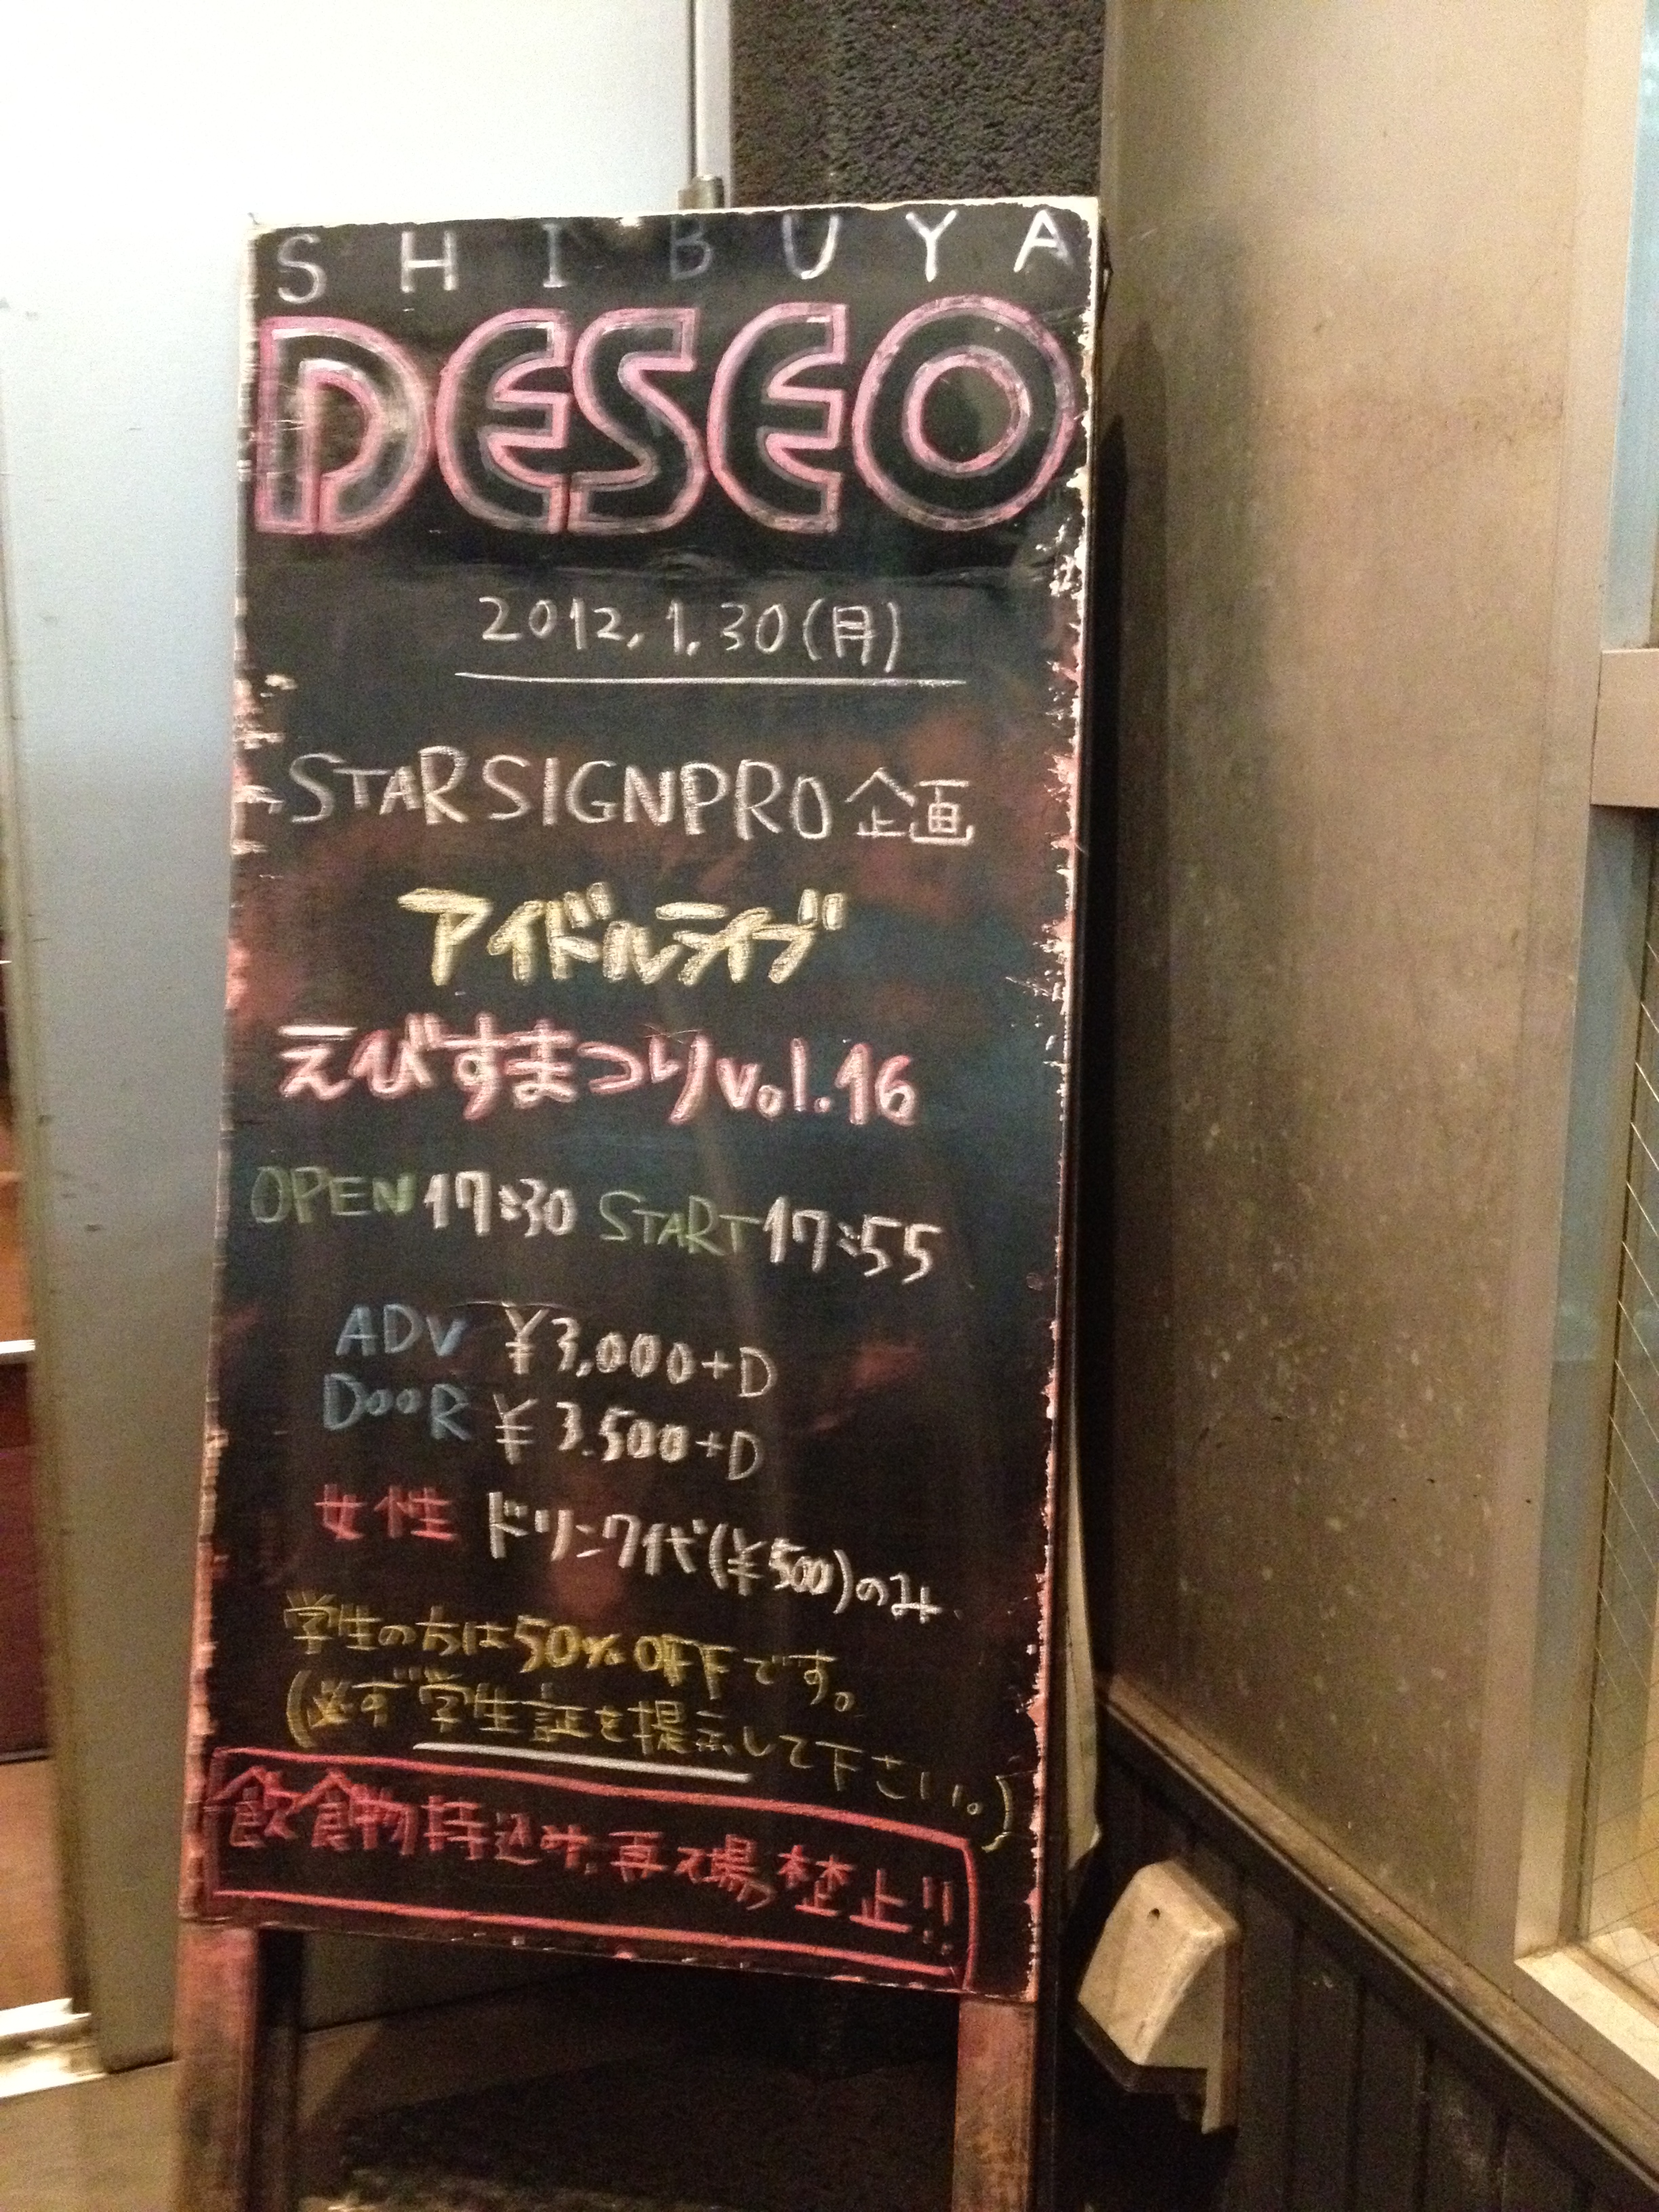 SHIBUYA
DESEO
2012.1.30(月)
STARSIGNPRO企画
アイドルライブ
えびすまつりvol.16
OPEN 17:30 START 17:55
ADV ¥3,000+D
DOOR ¥3.500+D
女性 ドリンク代(¥500)のみ
学生の方は50%OFFです。
(必ず学生証を提示して下さい。)
飲食物持込み、再入場、禁止!!